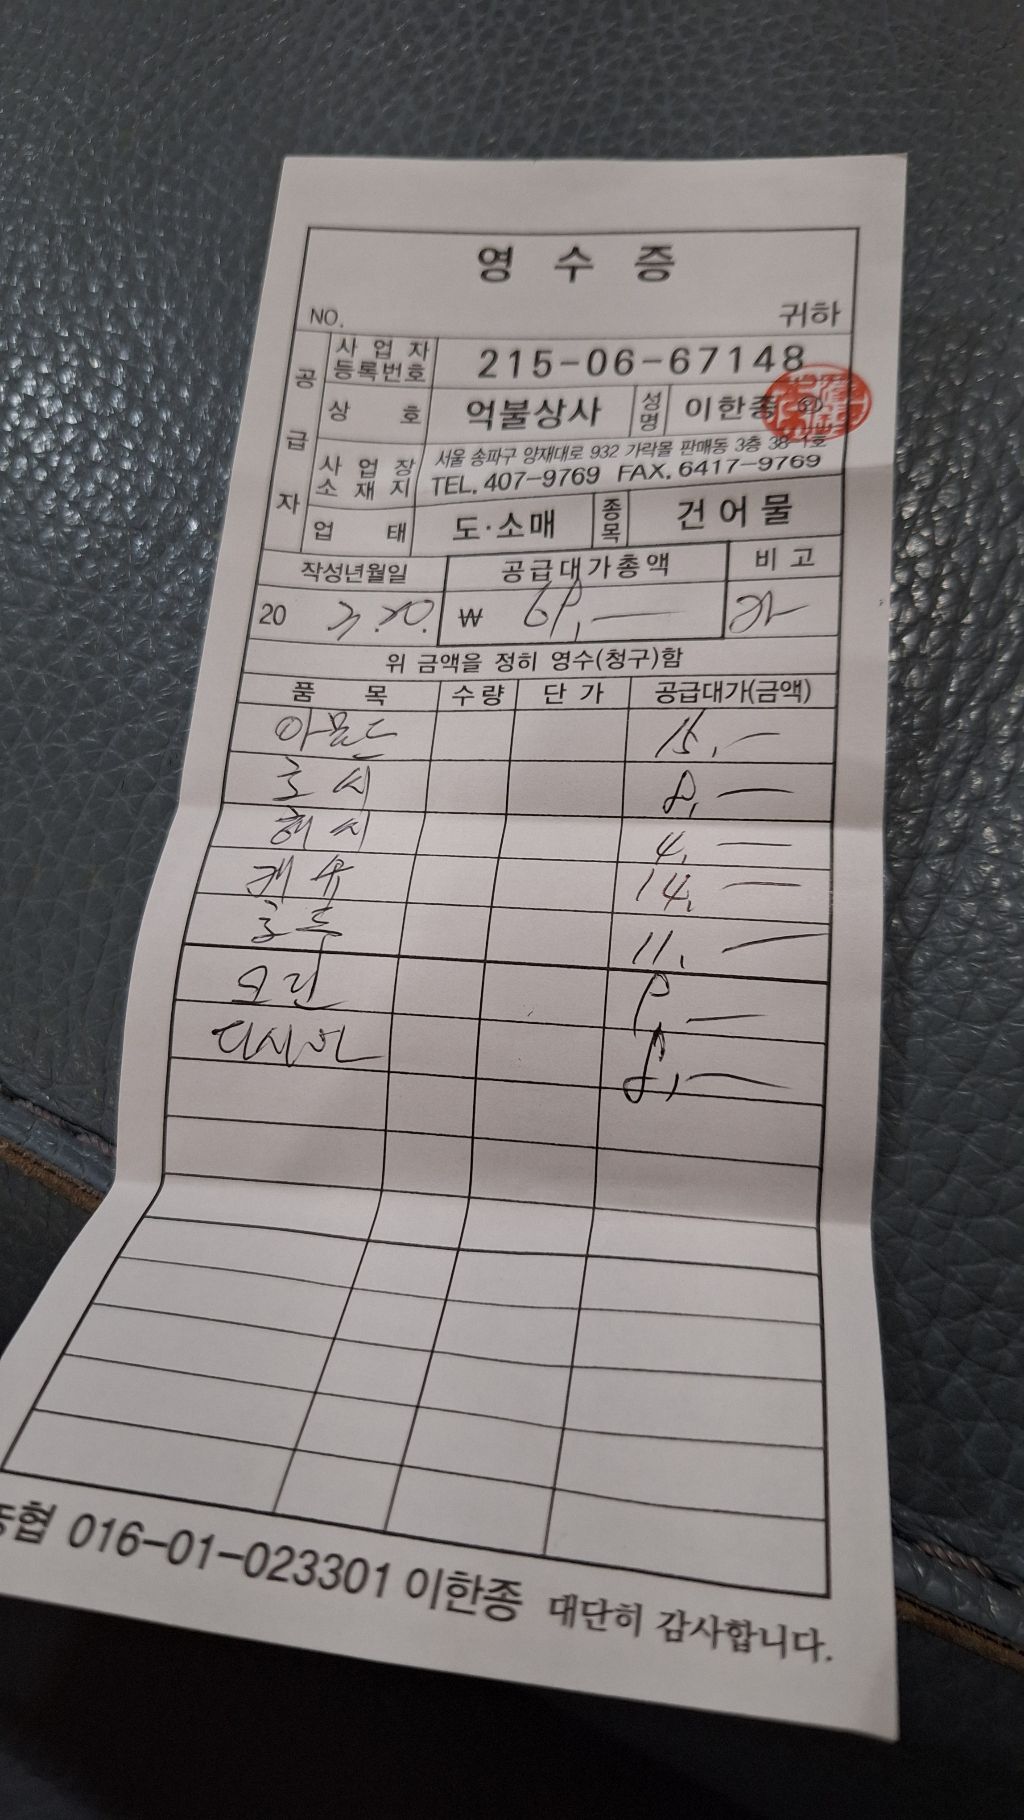 영 수 증
NO. 귀하
공급자
사업자등록번호 215-06-67148
상 호 억불상사 성명 이한종 ㊞
사업장소재지 서울 송파구 양재대로 932 가락몰 판매동 3층 38-1호
TEL. 407-9769 FAX. 6417-9769
업 태 도·소매 종목 건어물
작성년월일 공급대가총액 비 고
20 3.20. ₩ 69,—
위 금액을 정히 영수(청구)함
품 목 수량 단 가 공급대가(금액)
아몬드 15,—
호시 8,—
해시 4,—
캐슈 14,—
호두 11,—
오란 9,—
8,—
농협 016-01-023301 이한종 대단히 감사합니다.